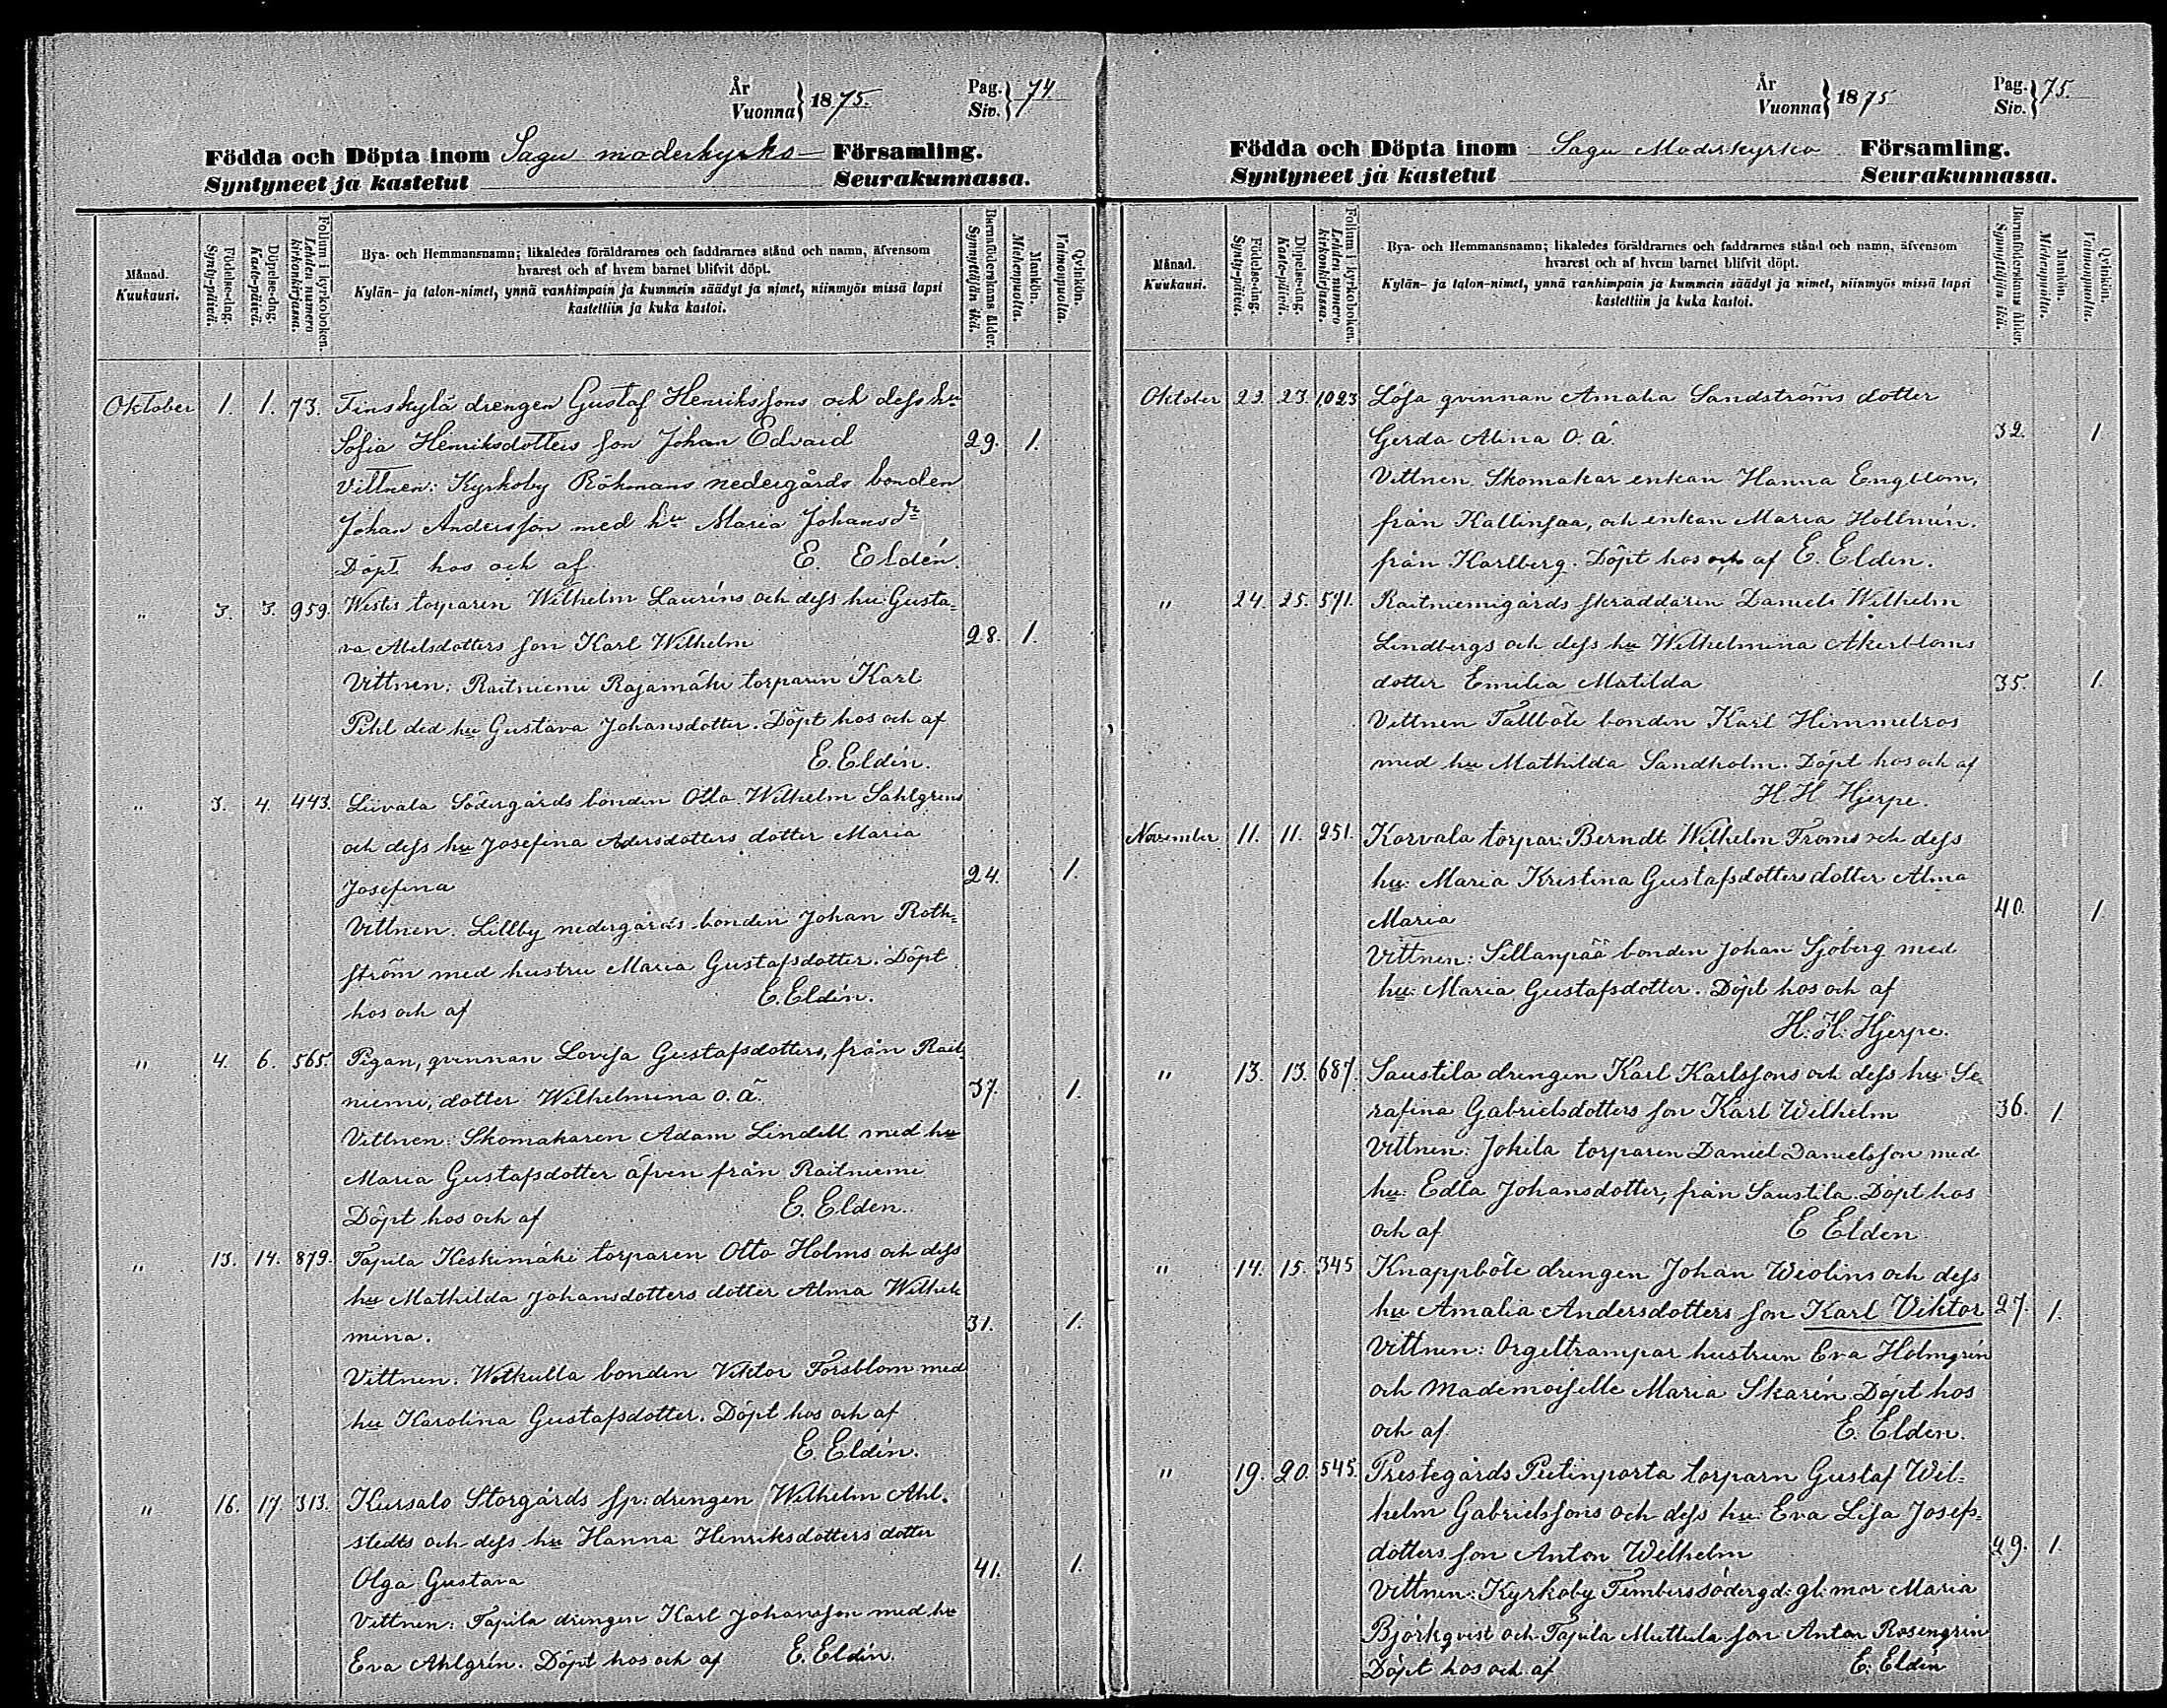 År
Vuonna } 1875.
Pag.
Siv. } 74
Födda och Döpta inom Sagu moderkyrko- Församling.
Syntyneet ja kastetut Seurakunnassa.
Månad.
Kuukausi.
Födelse-dag.
Synty-päivä.
Döpelse-dag.
Kaste-päivä.
Folium i kyrkoboken.
Lehden numero kirkonkirjassa.
Bya- och Hemmansnamn; likaledes föräldrarnes och faddrarnes stånd och namn, äfvensom
hvarest och af hvem barnet blifvit döpt.
Kylän- ja talon-nimet, ynnä vanhimpain ja kummein säädyt ja nimet, niinmyös missä lapsi
kastettiin ja kuka kastoi.
Barnaföderskans ålder.
Synnyttäjän ikä.
Mankön.
Miehenpuolia.
Qvinkön.
Vaimonpuolia.
Oktober 1. 1. 73. Finskylä drengen Gustaf Henrikssons och dess hu
Sofia Henriksdotters son Johan Edvard 29. 1.
Vittnen: Kyrkoby Rökmans nedergårds bonden
Johan Andersson med hu Maria Johansdr
Döpt hos och af E. Eldén.
" 3. 3. 959. Westis torparen Wilhelm Lauréns och dess hu: Gusta=
va Abelsdotters son Karl Wilhelm 28. 1.
Vittnen: Raitniemi Rajamäki torparen Karl
Pihl ded hu Gustava Johansdotter. Döpt hos och af
E. Eldén.
" 3. 4. 443. Liuvala Södergårds bonden Otto Wilhelm Sahlgrens
och dess hu Josefina Adersdotters dotter Maria
Josefina 24. 1.
Vittnen. Lillby nedergårds bonden Johan Roth=
ström med hustru Maria Gustafsdotter. Döpt
hos och af E. Eldén.
" 4. 6. 565. Pigan, qvinnan Lovisa Gustafsdotters, från Rait
niemi, dotter Wilhelmina o. ä. 37. 1.
Vittnen: Skomakaren Adam Lindell med hu
Maria Gustafsdotter äfven från Raitniemi
Döpt hos och af E. Elden.
" 13. 14. 879. Tapila Keskimäki torparen Otto Holms och dess
hu Mathilda Johansdotters dotter Alma Wilhel
mina. 31. 1.
Vittnen. Wolkulla bonden Viktor Forsblom med
hu Karolina Gustafsdotter. Döpt hos och af
E. Eldén.
" 16. 17. 313. Kursalo Storgårds sp: drengen Wilhelm Ahl=
stedts och dess hu Hanna Henriksdotters dotter
Olga Gustava 41. 1.
Vittnen: Tapila drengen Karl Johansson med hu
Eva Ahlgrén. Döpt hos och af E. Eldén.
År
Vuonna } 1875
Pag.
Siv. } 75.
Födda och Döpta inom Sagu Moderkyrko Församling.
Syntyneet ja kastetut Seurakunnassa.
Månad.
Kuukausi.
Födelse-dag.
Synty-päivä.
Döpelse-dag.
Kaste-päivä.
Folium i kyrkoboken.
Lehden numero kirkonkirjassa.
Bya- och Hemmansnamn; likaledes föräldrarnes och faddrarnes stånd och namn, äfvensom
hvarest och af hvem barnet blifvit döpt.
Kylän- ja talon-nimet, ynnä vanhimpain ja kummein säädyt ja nimet, niinmyös missä lapsi
kastettiin ja kuka kastoi.
Barnaföderskans ålder.
Synnyttäjän ikä.
Mankön.
Miehenpuolia.
Qvinkön.
Vaimonpuolia.
Oktober 22. 23. 1,023 Lösa qvinnan Amalia Sandströms dotter
Gerda Alina o. ä. 32. 1
Vittnen. Skomakar enkan Hanna Engblom,
från Kallinsaa, och enkan Maria Hollmén.
från Karlberg. Döpt hos och af E. Elden.
" 24. 25. 571. Raitniemigårds skräddaren Daniel Wilhelm
Lindbergs och dess hu Wilhelmina Åkerbloms
dotter Emilia Matilda 35. 1.
Vittnen Tallböle bonden Karl Himmelros
med hu Mathilda Sandholm. Döpt hos och af
H. H. Hjerpe.
November 11. 11. 251. Korvala torpar: Berndt Wilhelm Froms och dess
hu: Maria Kristina Gustafsdotters dotter Alma
Maria 40. 1
Vittnen: Sillanpää bonden Johan Sjöberg med
hu: Maria Gustafsdotter. Döpt hos och af
H: H: Hjerpe.
" 13. 13. 687. Saustila drengen Karl Karlssons och dess hu: Se=
rafina Gabrielsdotters son Karl Wilhelm 36. 1
Vittnen: Jokila torparen Daniel Danielsson med
hu: Edla Johansdotter, från Saustila. Döpt hos
och af E Elden
" 14. 15. 345 Knappböle drengen Johan Weolins och dess
hu Amalia Andersdotters son Karl Viktor 27. 1.
Vittnen: Orgeltrampar hustrun Eva Holmgrén
och Mademoiselle Maria Skarén. Döpt hos
och af E. Elden.
" 19. 20. 545. Prestegårds Putinporta torparn Gustaf Wil=
helm Gabrielssons och dess hu: Eva Lisa Josefs=
dotters son Anton Wilhelm 29. 1.
Vittnen: Kyrkoby Timbers södergd: gl: mor Maria
Björkqvist och Tapila Muttula son Anton Rosengrén
Döpt hos och af E: Eldén